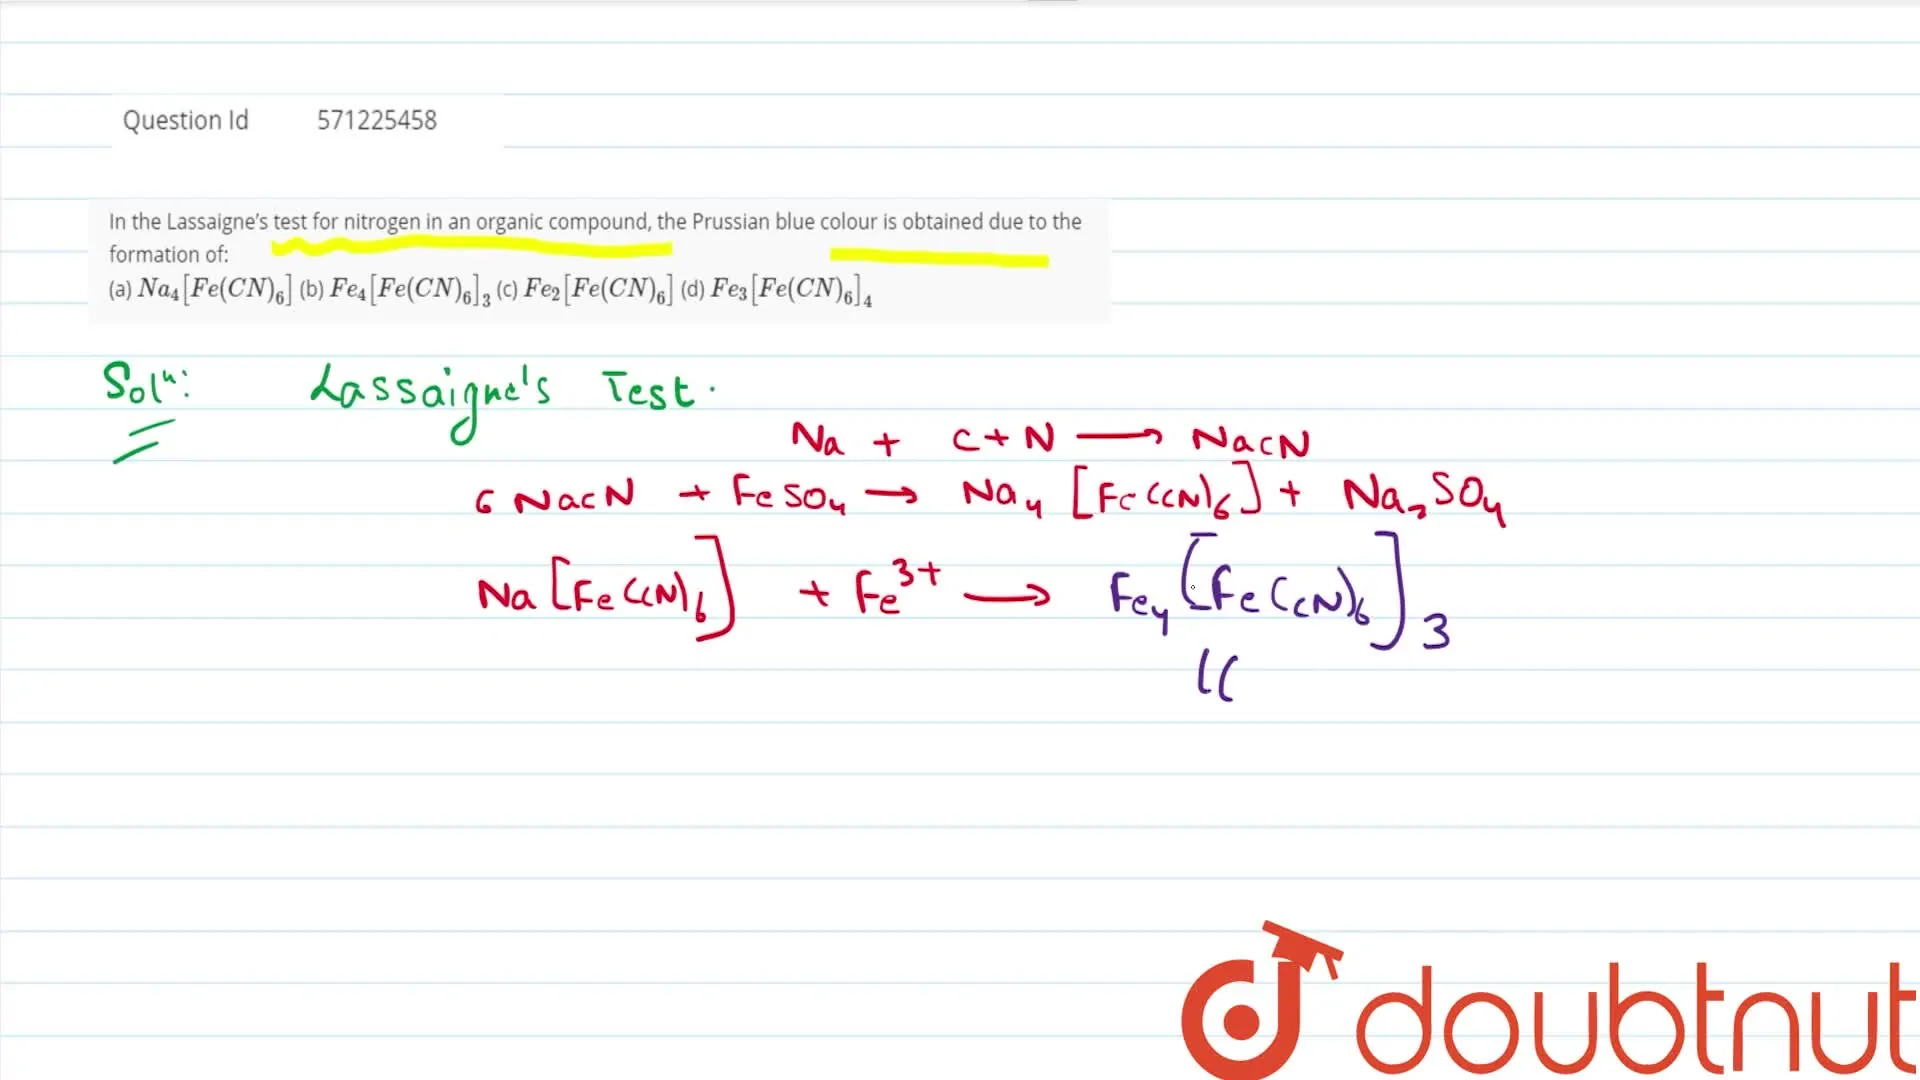 Question Id 571225458
In the Lassaigne’s test for nitrogen in an organic compound, the Prussian blue colour is obtained due to the
formation of:
(a) Na₄[Fe(CN)₆] (b) Fe₄[Fe(CN)₆]₃ (c) Fe₂[Fe(CN)₆] (d) Fe₃[Fe(CN)₆]₄
Solⁿ: Lassaigne's Test.
Na + C + N → NaCN
6 NaCN + FeSO₄ → Na₄[Fe(CN)₆] + Na₂SO₄
Na[Fe(CN)₆] + Fe³⁺ → Fe₄[Fe(CN)₆]₃
doubtnut